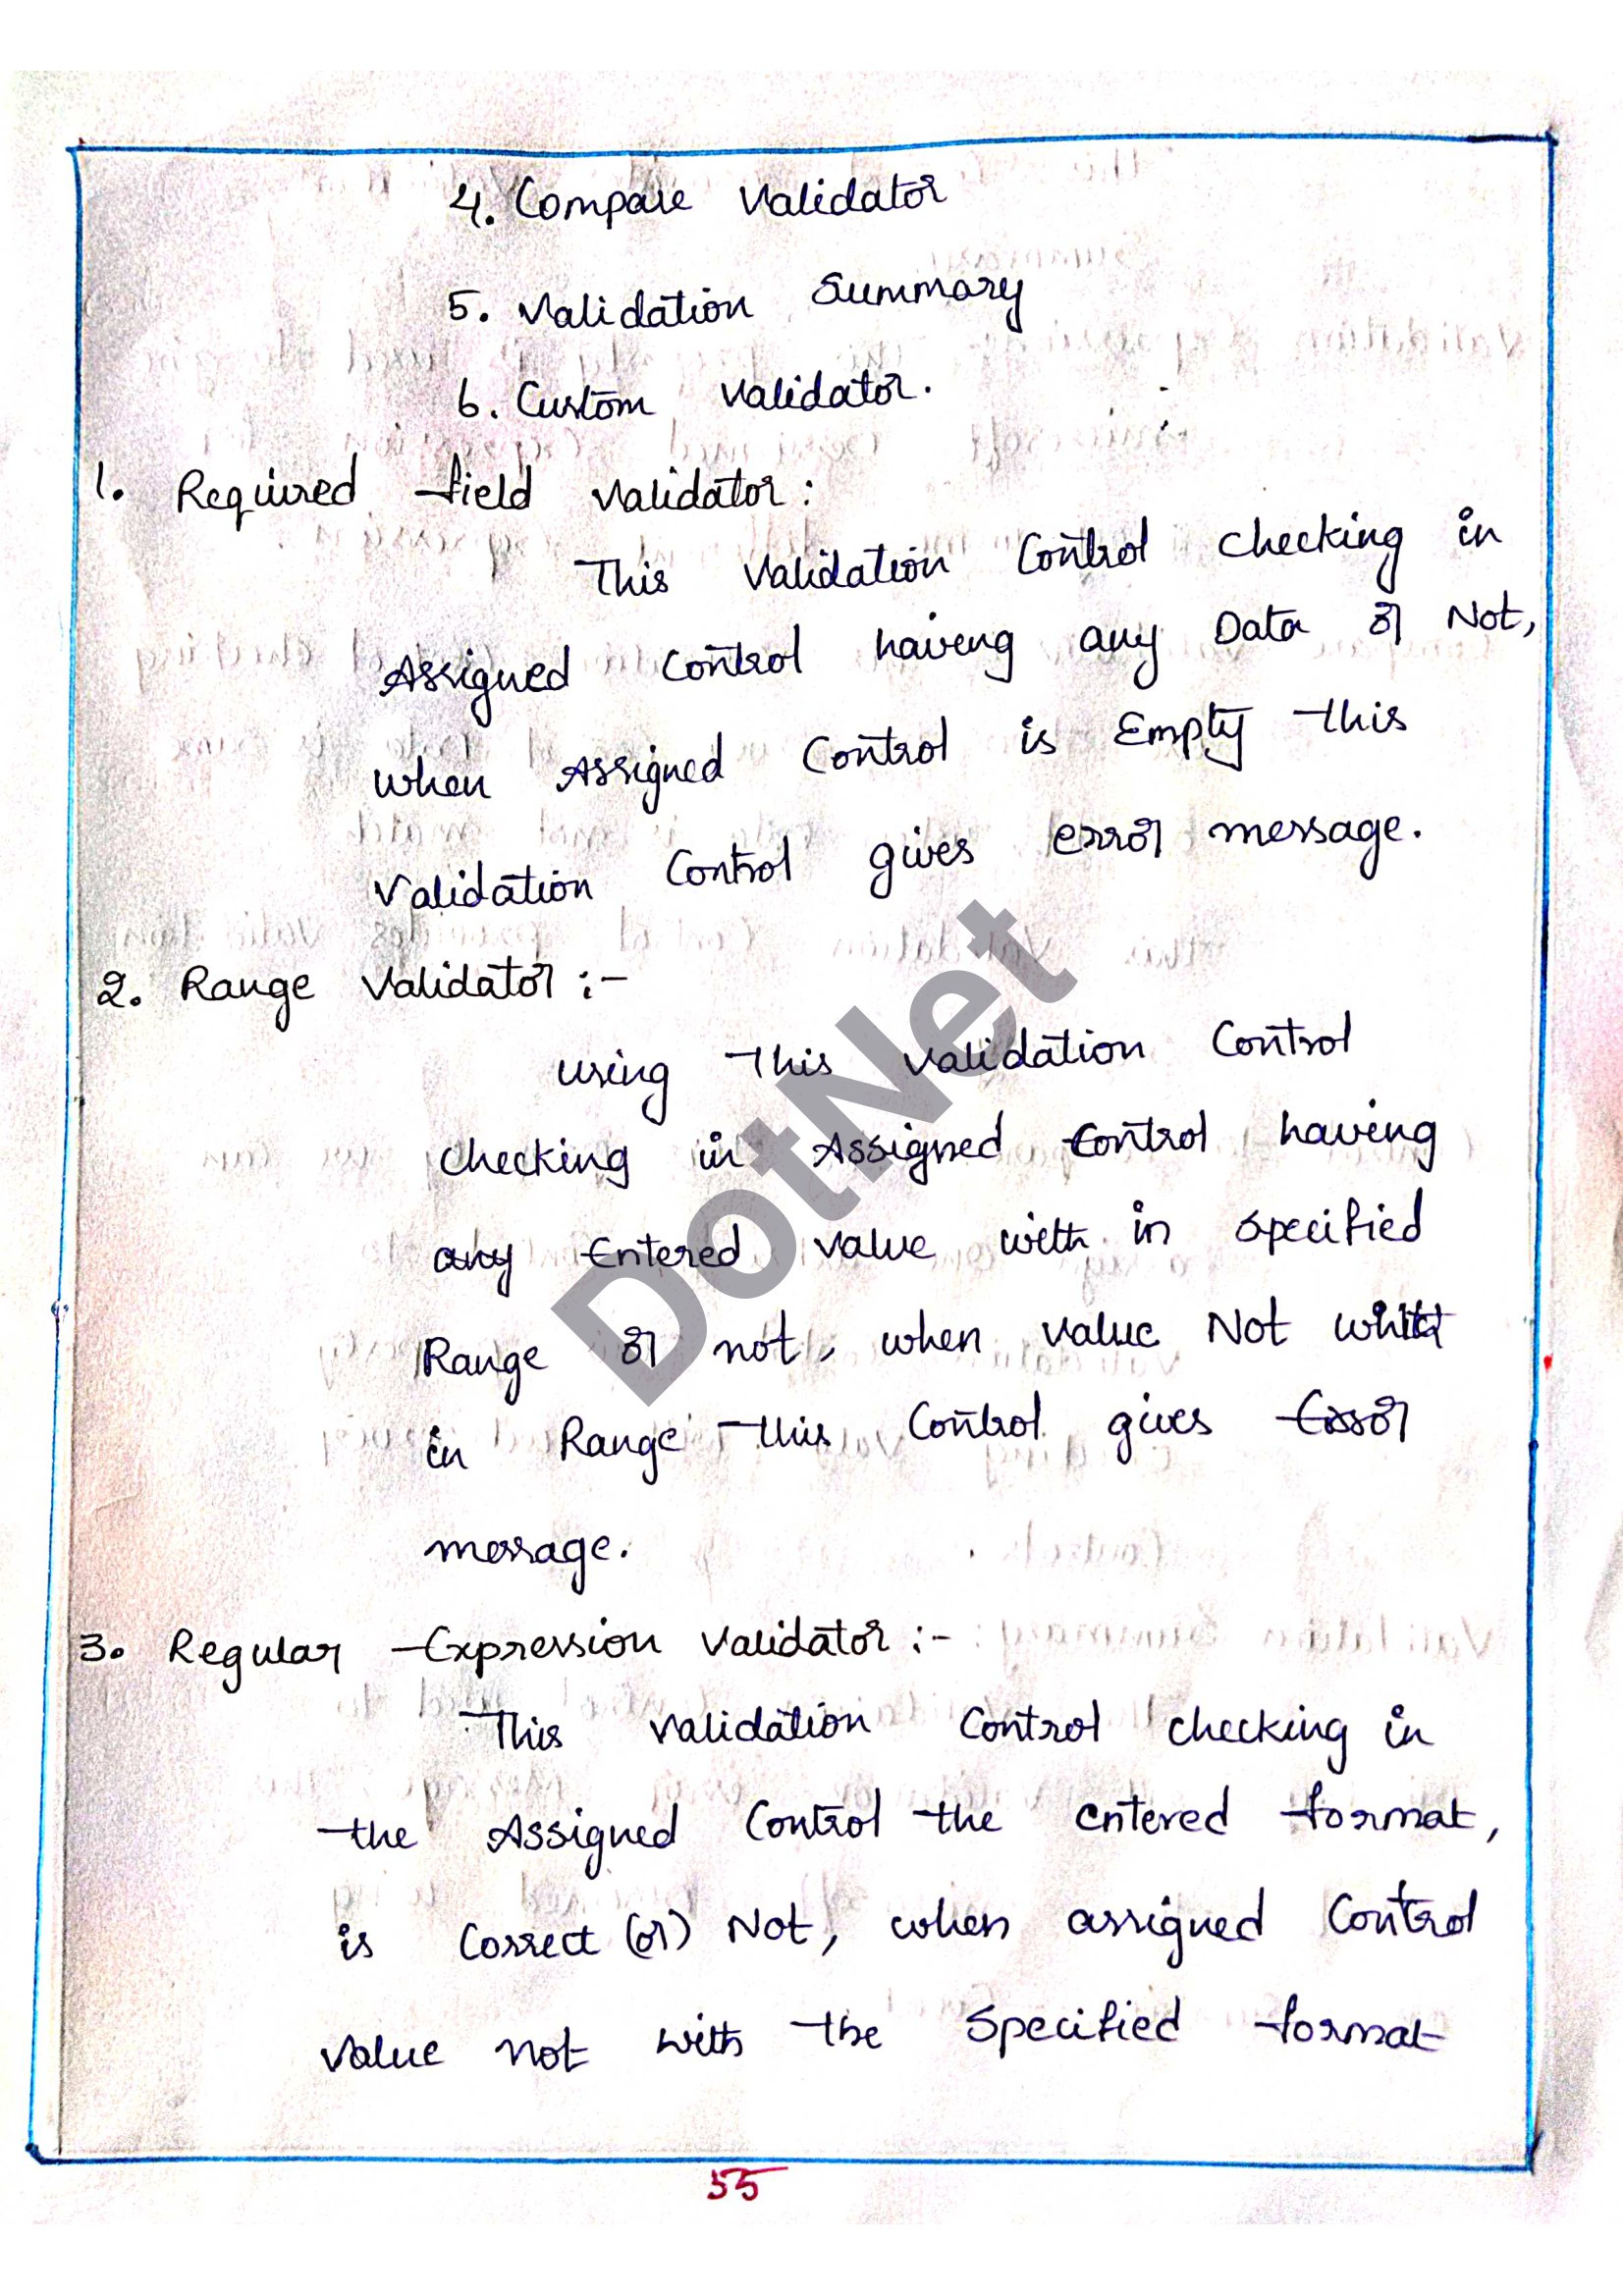 4. Compare Validator
5. Validation Summary
6. Custom Validator.
1. Required field Validator:
This Validation Control checking in
Assigned Control haveng any Data or Not,
when Assigned Control is Empty this
Validation Control gives error message.
2. Range Validator :-
using This Validation Control
checking in Assigned Control having
any Entered value with in specified
Range or not, when value Not
in Range This Control gives Error
message.
3. Regular Expression Validator :-
This Validation Control checking in
the Assigned Control the entered format,
is Correct (or) Not, when assigned Control
value not with the Specified format
55
DotNet